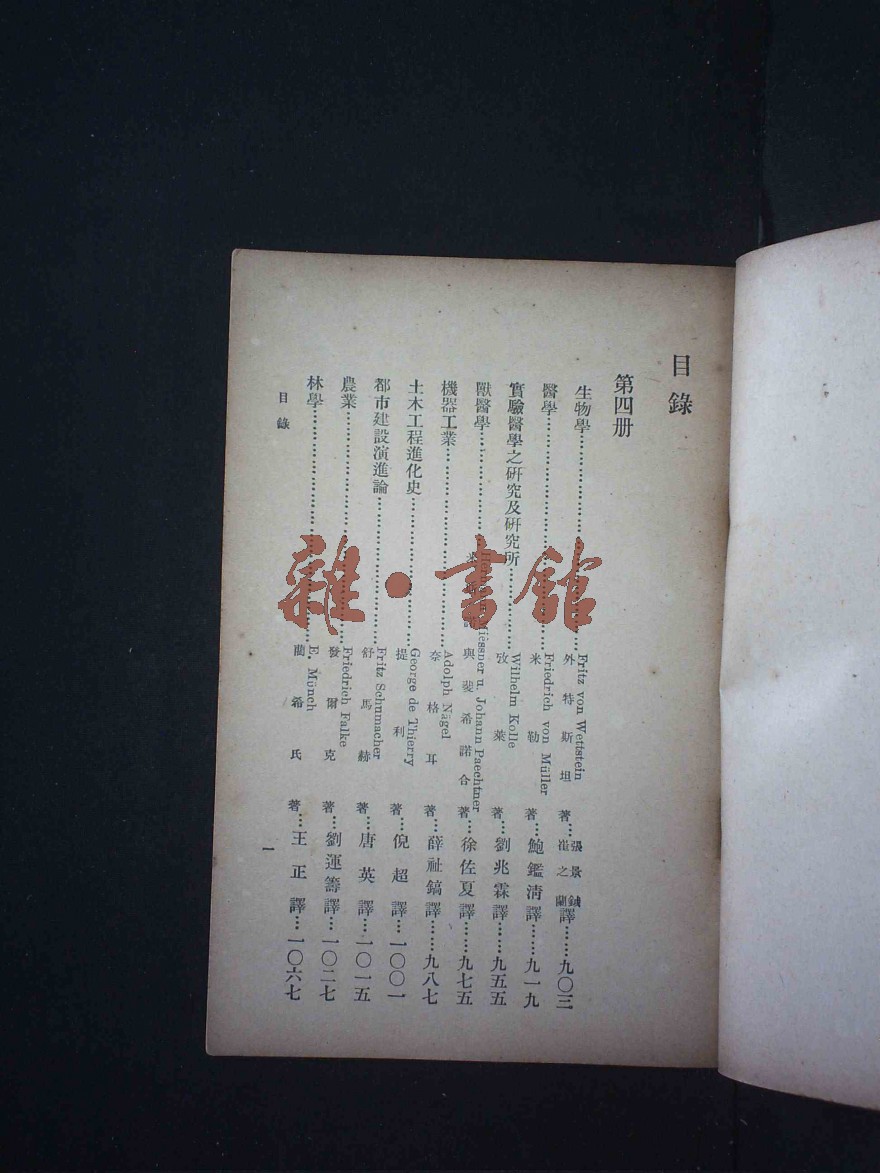 目錄
第四册
生物學 Fritz von Wettstein 外特斯坦 著 張景鉞 崔之蘭 譯 九〇三
醫學 Friedrich von Müller 米勒 著 鮑鑑淸 譯 九一九
實驗醫學之研究及研究所 Wilhelm Kolle 攷萊 著 劉兆霖 譯 九五五
獸醫學 u. Johann Paechtner 與斐希諾合著 徐佐夏 譯 九七五
機器工業 Adolph Nägel 奈格耳 著 薛祉鎬 譯 九八七
土木工程進化史 George de Thierry 提利 著 倪超 譯 一〇〇一
都市建設演進論 Fritz Schumacher 舒馬赫 著 唐英 譯 一〇一五
農業 Friedrich Falke 發爾克 著 劉運籌 譯 一〇二七
林學 E. Münch 藺希氏 著 王正 譯 一〇六七
目錄
一
雜·書館